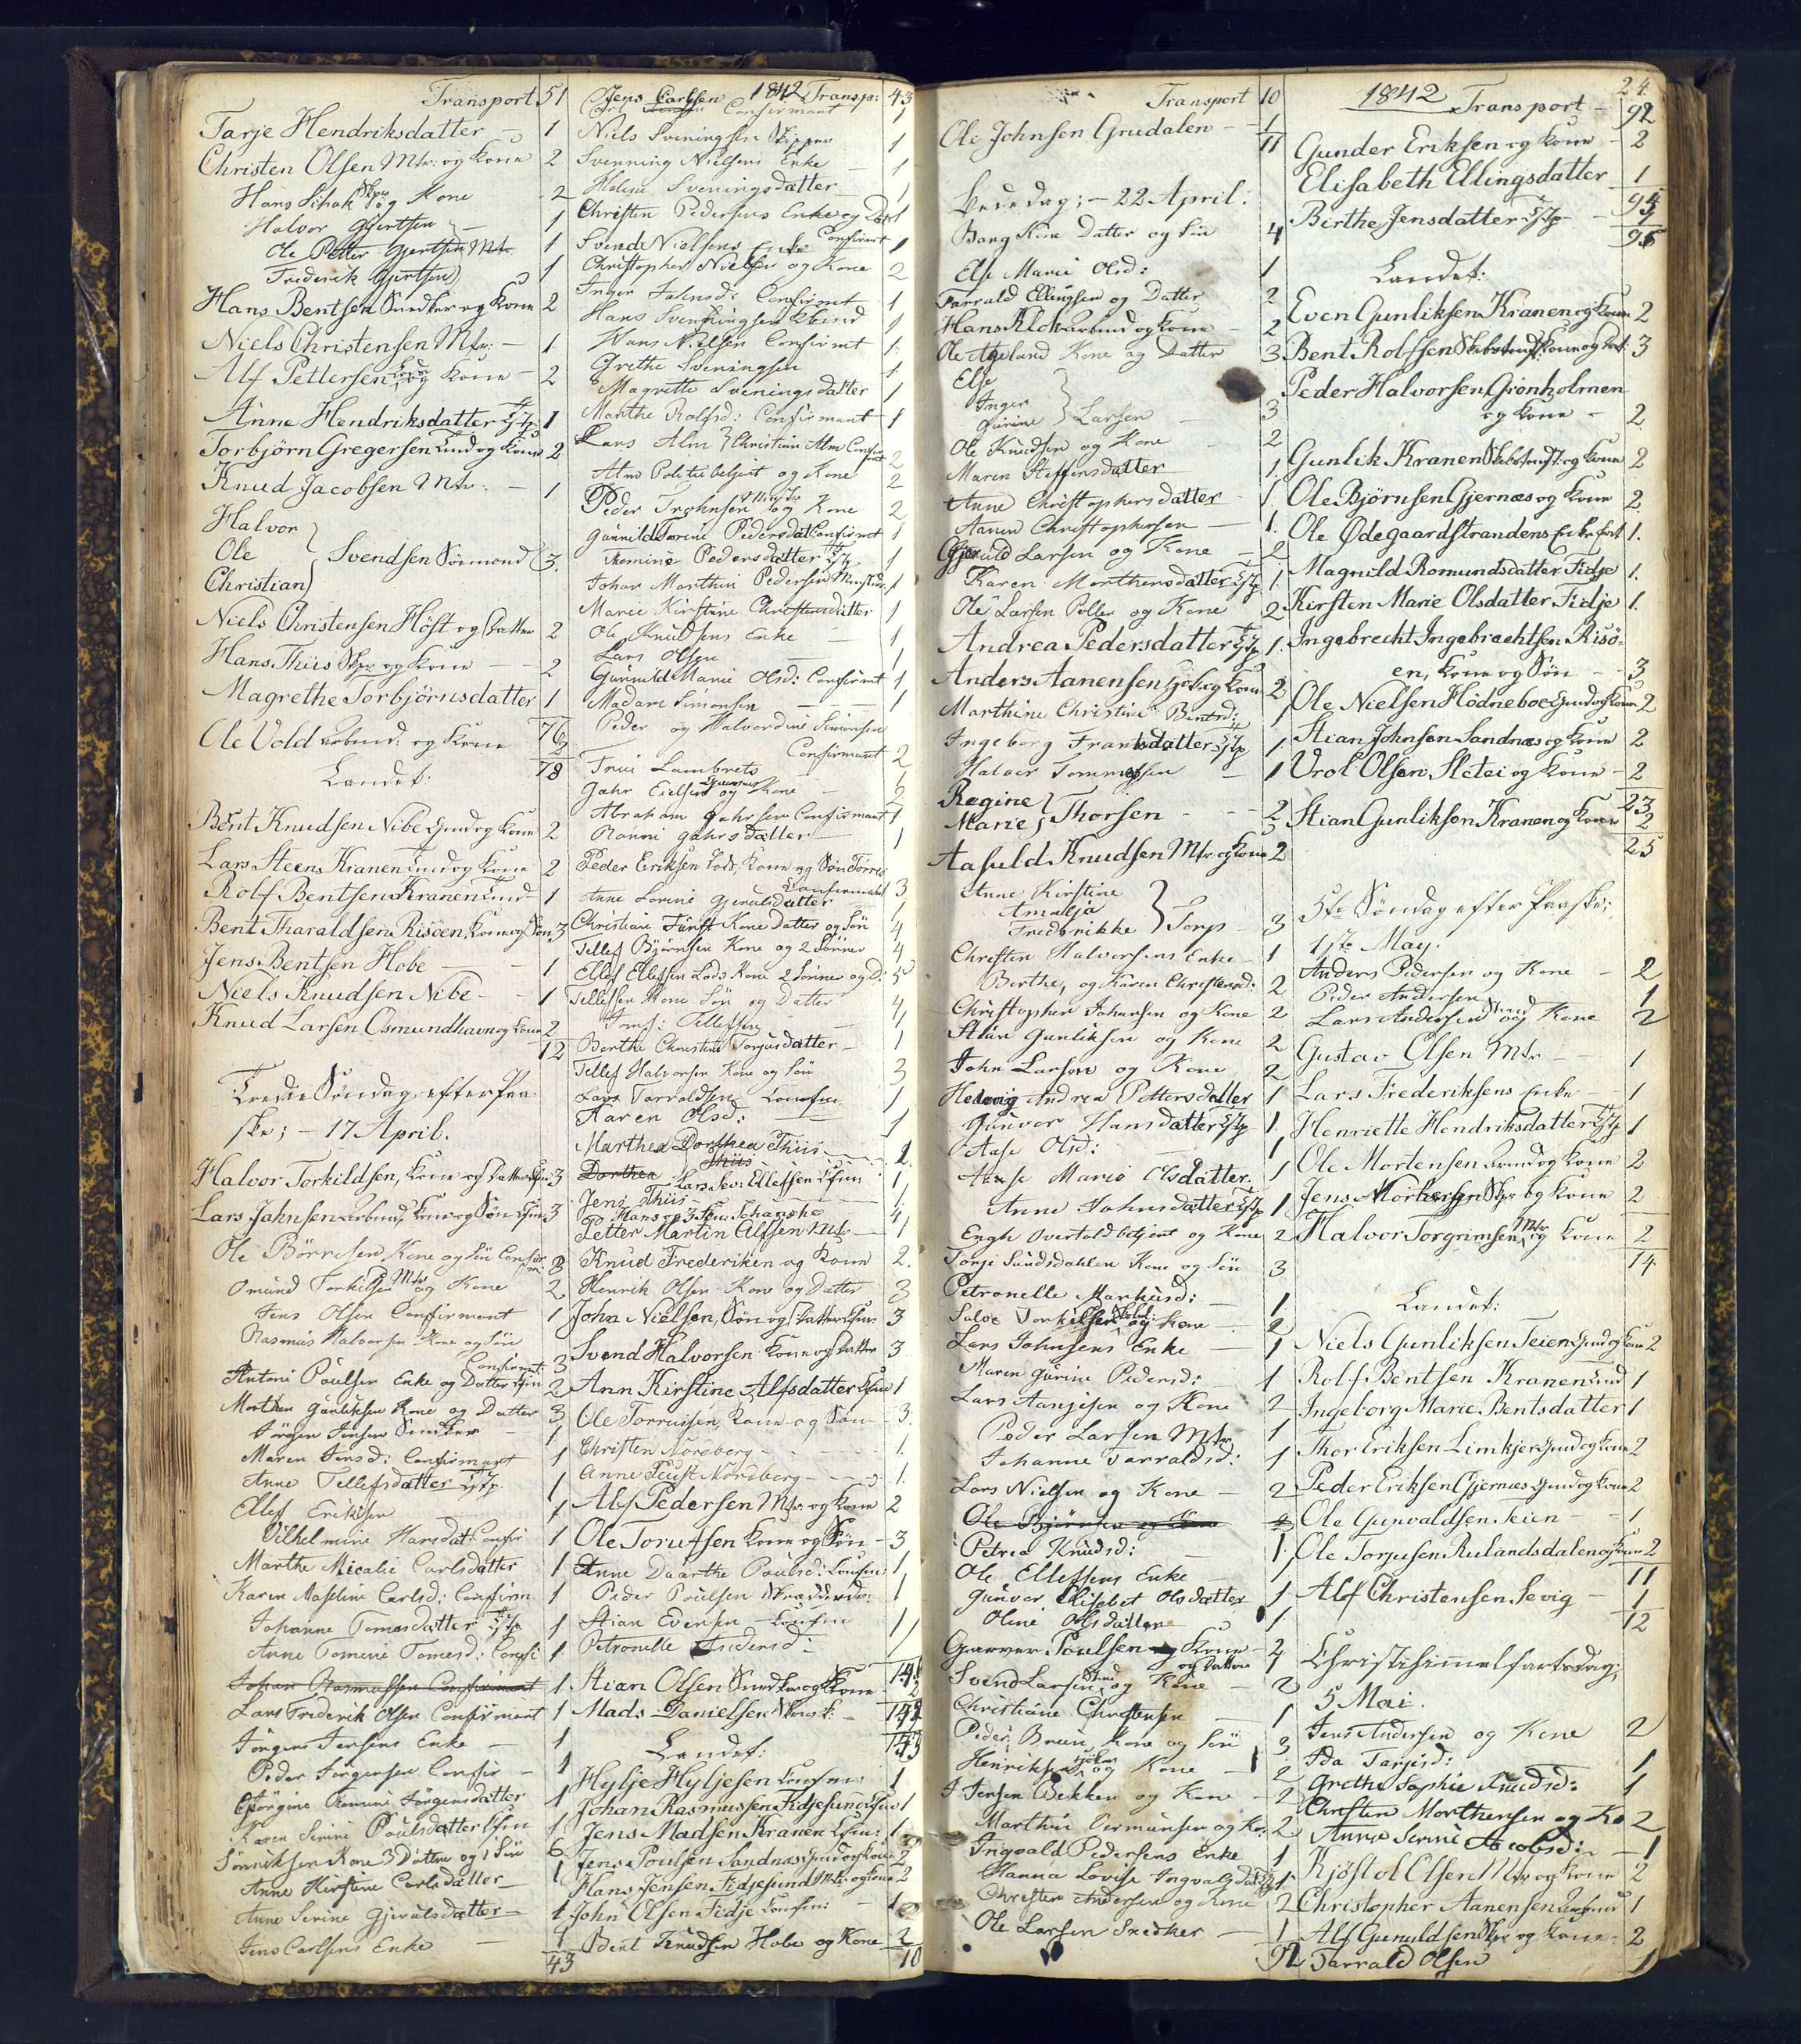 Transport 51
Tarje Hendriksdatter - 1
Christen Olsen Mtr: og Kone 2
Hans Schak Skpr og Kone - 2
Halvor Gjertsen - 1
Ole Petter Gjertsen Mtr 1
Frederik Gjertsen 1
Hans Bentsen Snedker og Kone 2
Niels Christensen Mtr: - 1
Alf Pettersen og Kone - 2
Anne Hendriksdatter Tj:p 1
Torbjörn Gregersen og Kone 2
Knud Jacobsen Mtr: - 1
Halvor
Ole } Svendsen Sörmond 3.
Christian
Niels Christensen Höst og Datter 2
Hans Thiis Skpr og Kone - 2
Magrethe Torbjörnsdatter 1
76
Ole Vold arbmd: og Kone 2
78
Landet:
Bent Knudsen Nibe Gmd og Kone 2
Lars Steen Kranen og Kone 2
Rolf Bentsen Kranen - 1
Bent Tharaldsen Risöen, Kone og Sön 3
Jens Bentsen Hobe - 1
Niels Knudsen Nibe - 1
Knud Larsen Osmundhavn og Kone 2
12
Tredie Söndag efter Paa-
ske; - 17 April.
Halvor Torkildsen, Kone og Datter 3
Lars Jahnsen arbmd, Kone og Sön 3
Ole Börresen Kone og Sön Confirm: 3
Omund Torkilsen Mtr og Kone 2
Jens Olsen Confirmant 1
Rasmus Halvorsen Kone og Sön
Confirmt: 3
Antoni Poulsen Enke og Datter 2
Morthen Gunliksen Kone og Datter 3
Jörgen Jensen Snedker - 1
Maren Jensd: Confirmant 1
Anne Tellefsdatter Tj:p. 1
Ellef Eriksen 1
Vilhelmine Hansdat: Confir 1
Marthe Micalie Carlsdatter 1
Karen Naseline Carlsd: Confirm 1
Johanne Tomasdatter Tj:p 1
Anne Tomine Tomesd: Confi 1
Johan Rasmussen Confirmant 1
Lars Frederik Olsen Confirmant 1
Jörgen Jensens Enke - 1
Peder Jörgensen Confir - 1
Jörgine Jörgensdatter 1
Karen Serine Poulsdatter 1
Sörniksen Kone 3 Döttre og 1 Sön 6
Anne Kirstine Carlsdatter - 1
Anne Serine Gjerulsdatter - 1
Jens Carlsens Enke - 1
43
1842 Transp: 43
Jens Carlsen Confirmant 1
Niels Sveningsen Skipper 1
Svenning Nielsens Enke 1
Helene Sveningsdatter 1
Christen Pedersens Enke og Dat: 1
Confirmt
Svend Nielsens Enke 1
Christopher Nielsen og Kone 2
Inger Jahnsd: Confirmt 1
Hans Svenningsen 1
Hans Nielsen Confirmt 1.
Grethe Sveningsen 1.
Magrethe Sveningsdatter 1
Marthe Rolfsd: Confirmant 1
Lars Alm } Christian Alm Confirmt 2
Alm Politiebetjent og Kone 2
Peder Inghnsen og Kone 2
Gunnild Torine Pedersdat: Confirmt 1
Pedersdatter Tj:p 1
Johan Marthin Pedersen 1
Marie Kirstine Christensdatter 1
Ole Knudsens Enke - 1
Lars Olsen 1
Gunnild Marie Olsd: Confirmt 1
Madam Simonsen 1
Peder og Halvordine Simonsen
Confirmant 2
Frue Lambrets 1
Gahr Eielsen og Kone - 2
Abraham Gahrsen Confirmant 1
Ronni Gahrsdatter 1
Peder Eriksen Lods, Kone og Sön Torres
Confirmant 3
Anne Lovine Gjerulsdatter
Christian Fürst Kone Datter og Sön 4
Tellef Björnsen Kone og 2 Sönner 4
Ellef Ellefsen Lods Kone 2 Sönner og D: 5
Tellefsen Kone Sön og Datter 4
Tellefsen 1
Berthe Christine Torjusdatter - 1
Tellef Halvorsen Kone og Sön 3
Lars Tarraldsen Confirm 1
Karen Olsd: 1
Marthea Dorthea Thiis 1.
Dorthea Thiis
Lars Sev: Ellefsen 1
Jens Thiis 1
Hans og 3 Schanche 4
Petter Martin Alfsen Mtr 1
Knud Frederiken og Kone 2.
Henrik Olsen Kone og Datter 3
John Nielsen, Sön og Datter 3
Svend Halvorsen Kone og Datter 3
Ann Kirstine Alfsdatter 1
Ole Torruisen, Kone og Sön 3.
Christen Nordberg - 1.
Anne Faust Nordberg - 1.
Alef Pedersen Mtr. og Kone 2
Ole Torufsen Kone og Sön - 3
Anne Daarthe Poulsd: Confirm 1
Peder Poulsen Skræddersv: 1
Stian Evensen Confirm 1
Petronelle Andersd: 1
Stian Olsen Snedker og Kone 2
Mads Danielsen
Landet:
Hylje Hyljesen Confirm: 1
Johan Rasmussen Fidjesund 1
Jens Madsen Kranen 1
Jens Poulsen Sandnæs Gmd og Kone 2
Hans Jensen Fidjesund Mtr. og Kone 2
John Olsen Fidje Confirm: 1
Bent Knudsen Hobe og Kone 2
10
Transport 10
Ole Johnsen Grudalen - 1
11
Bededag; - 22 April.
Bang Kone Datter og Sön 4
Else Marie Olsd: 1
Tarrald Ellingsen og Datter 2
Hans Klok arbmd og Kone - 2
Ole Ageland Kone og Datter 3
Else
Inger } Larsen 3
Gurine
Ole Knudsen og Kone 2
Maren Steffensdatter 1
Anne Christophersdatter 1.
Aanen Christophersen - 1.
Gjeruld Larsen og Kone - 2
Karen Morthensdatter Tj:p 1
Ole Larsen Poller og Kone 2
Andrea Pedersdatter Tj:p 1.
Anders Aanensen og Kone 2
Marthine Christine Bentsd: 1
Ingeborg Frantsdatter Tj:p 1
Halvor Tommesen 1
Regine
Marie } Thorsen - 2
Aasuld Knudsen Mtr og Kone 2
Anne Kirstine
Amalja } Torp - 3
Frederikke
Christen Halvorsens Enke - 1
Berthe, og Karen Christensd: 2
Christopher Johansen og Kone 2
Stian Gunliksen og Kone 2
John Larsen og Kone 2
Hedevig Andrea Pettersdatter 1
Gunvor Hansdatter Tj:p 1.
Aase Olsd: 1
Aase Marie Olsdatter. 1
Anne Jahnsdatter Tj:p 1.
Engh Overtoldbetjent og Kone 2
Tarje Sundsdahlen Kone og Sön 3
Petronelle Markusd: 1
Salve Torkilsen og Kone 2
Lars Johnsens Enke - 1
Maren Gurine Pedersd: 1
Lars Aanjesen og Kone 2
Peder Larsen Mtr 1
Johanne Tarraldsd: 1
Lars Nielsen og Kone - 2
Ole Björnsen og Kone 2
Petrea Knudsd: 1
Ole Ellefsens Enke -
Gunvor Elisebet Olsdatter 1
Oline Olsdatter 1
Garver Poulsen og Kone 2
og Datter 1
Svend Larsen og Kone 2
Christiane Christensen 1
Peder Bruun, Kone og Sön 3
Henriksen og Kone - 2
J Jensen Bekken og Kone - 2
Marthin Hermansen og Ko: 2
Ingvald Pedersens Enke 1
Hanna Lovise Ingvalsdat 1
Christen Andersen og Kone 2
Ole Larsen Snedker - 1
92
24.
1842 Transport - 92
Gunder Eriksen og Kone - 2
Elisabeth Ellingsdatter 1
95
Berthe Jensdatter Tj:p - 1
96
Landet:
Even Gunliksen Kranen og Kone 2
Bent Rolfsen Kone og Dat: 3
Peder Halvorsen Grönholmen
og Kone - 2
Gunlik Kranen og Kone 2
Ole Björnsen Gjernæs og Kone 2
Ole Ødegaardstrandens Enke 1.
Magnild Romundsdatter Fidje 1.
Kirsten Marie Olsdatter Fidje 1.
Ingebrecht Ingebrechtsen Risö-
en, Kone og Sön - 3
Ole Nielsen Hödneboe Gmd og Kone 2
Stian Johnsen Sandnæs og Kone 2
Vrol Olsen Sletei og Kone - 2
23
Stian Gunliksen Kranen og Kone 2
25
5te Söndag efter Paaske;
1ste May.
Anders Pedersen og Kone - 2
Peder Andersen 1
Lars Andersen og Kone 2
Gustav Olsen Mtr - 1
Lars Frederiksens Enke - 1
Henriette Hendriksdatter Tj:p 1
Ole Mortensen arbmd og Kone 2
Jens Mortensen Skpr og Kone 2
Halvor Torgrimsen Mtr og Kone 2
14
Landet:
Niels Gunliksen Teien Gmd og Kone 2
Rolf Bentsen Kranen 1
Ingeborg Marie Bentsdatter 1
Thor Eriksen Limkjer Gmd og Kone 2
Peder Eriksen Gjernæs Gmd og Kone 2
Ole Gunvaldsen Teien - 1
Ole Torjusen Rulandsdalen og Kone 2
11
Alef Christensen Sevig - 1
12
Christihimmelfartsdag;
5 Mai.
Jens Andersen og Kone 2
Ida Tarjesd: 1
Grethe Sophie Knudsd: 1
Christen Morthensen og Ko 2
Anne Serine Jacobsd: - 1
Kjöstol Olsen Mtr og Kone 2
Christopher Aanensen 1
Alf Gunuldsen Skpr og Kone - 2
Tarrald Olsen 1